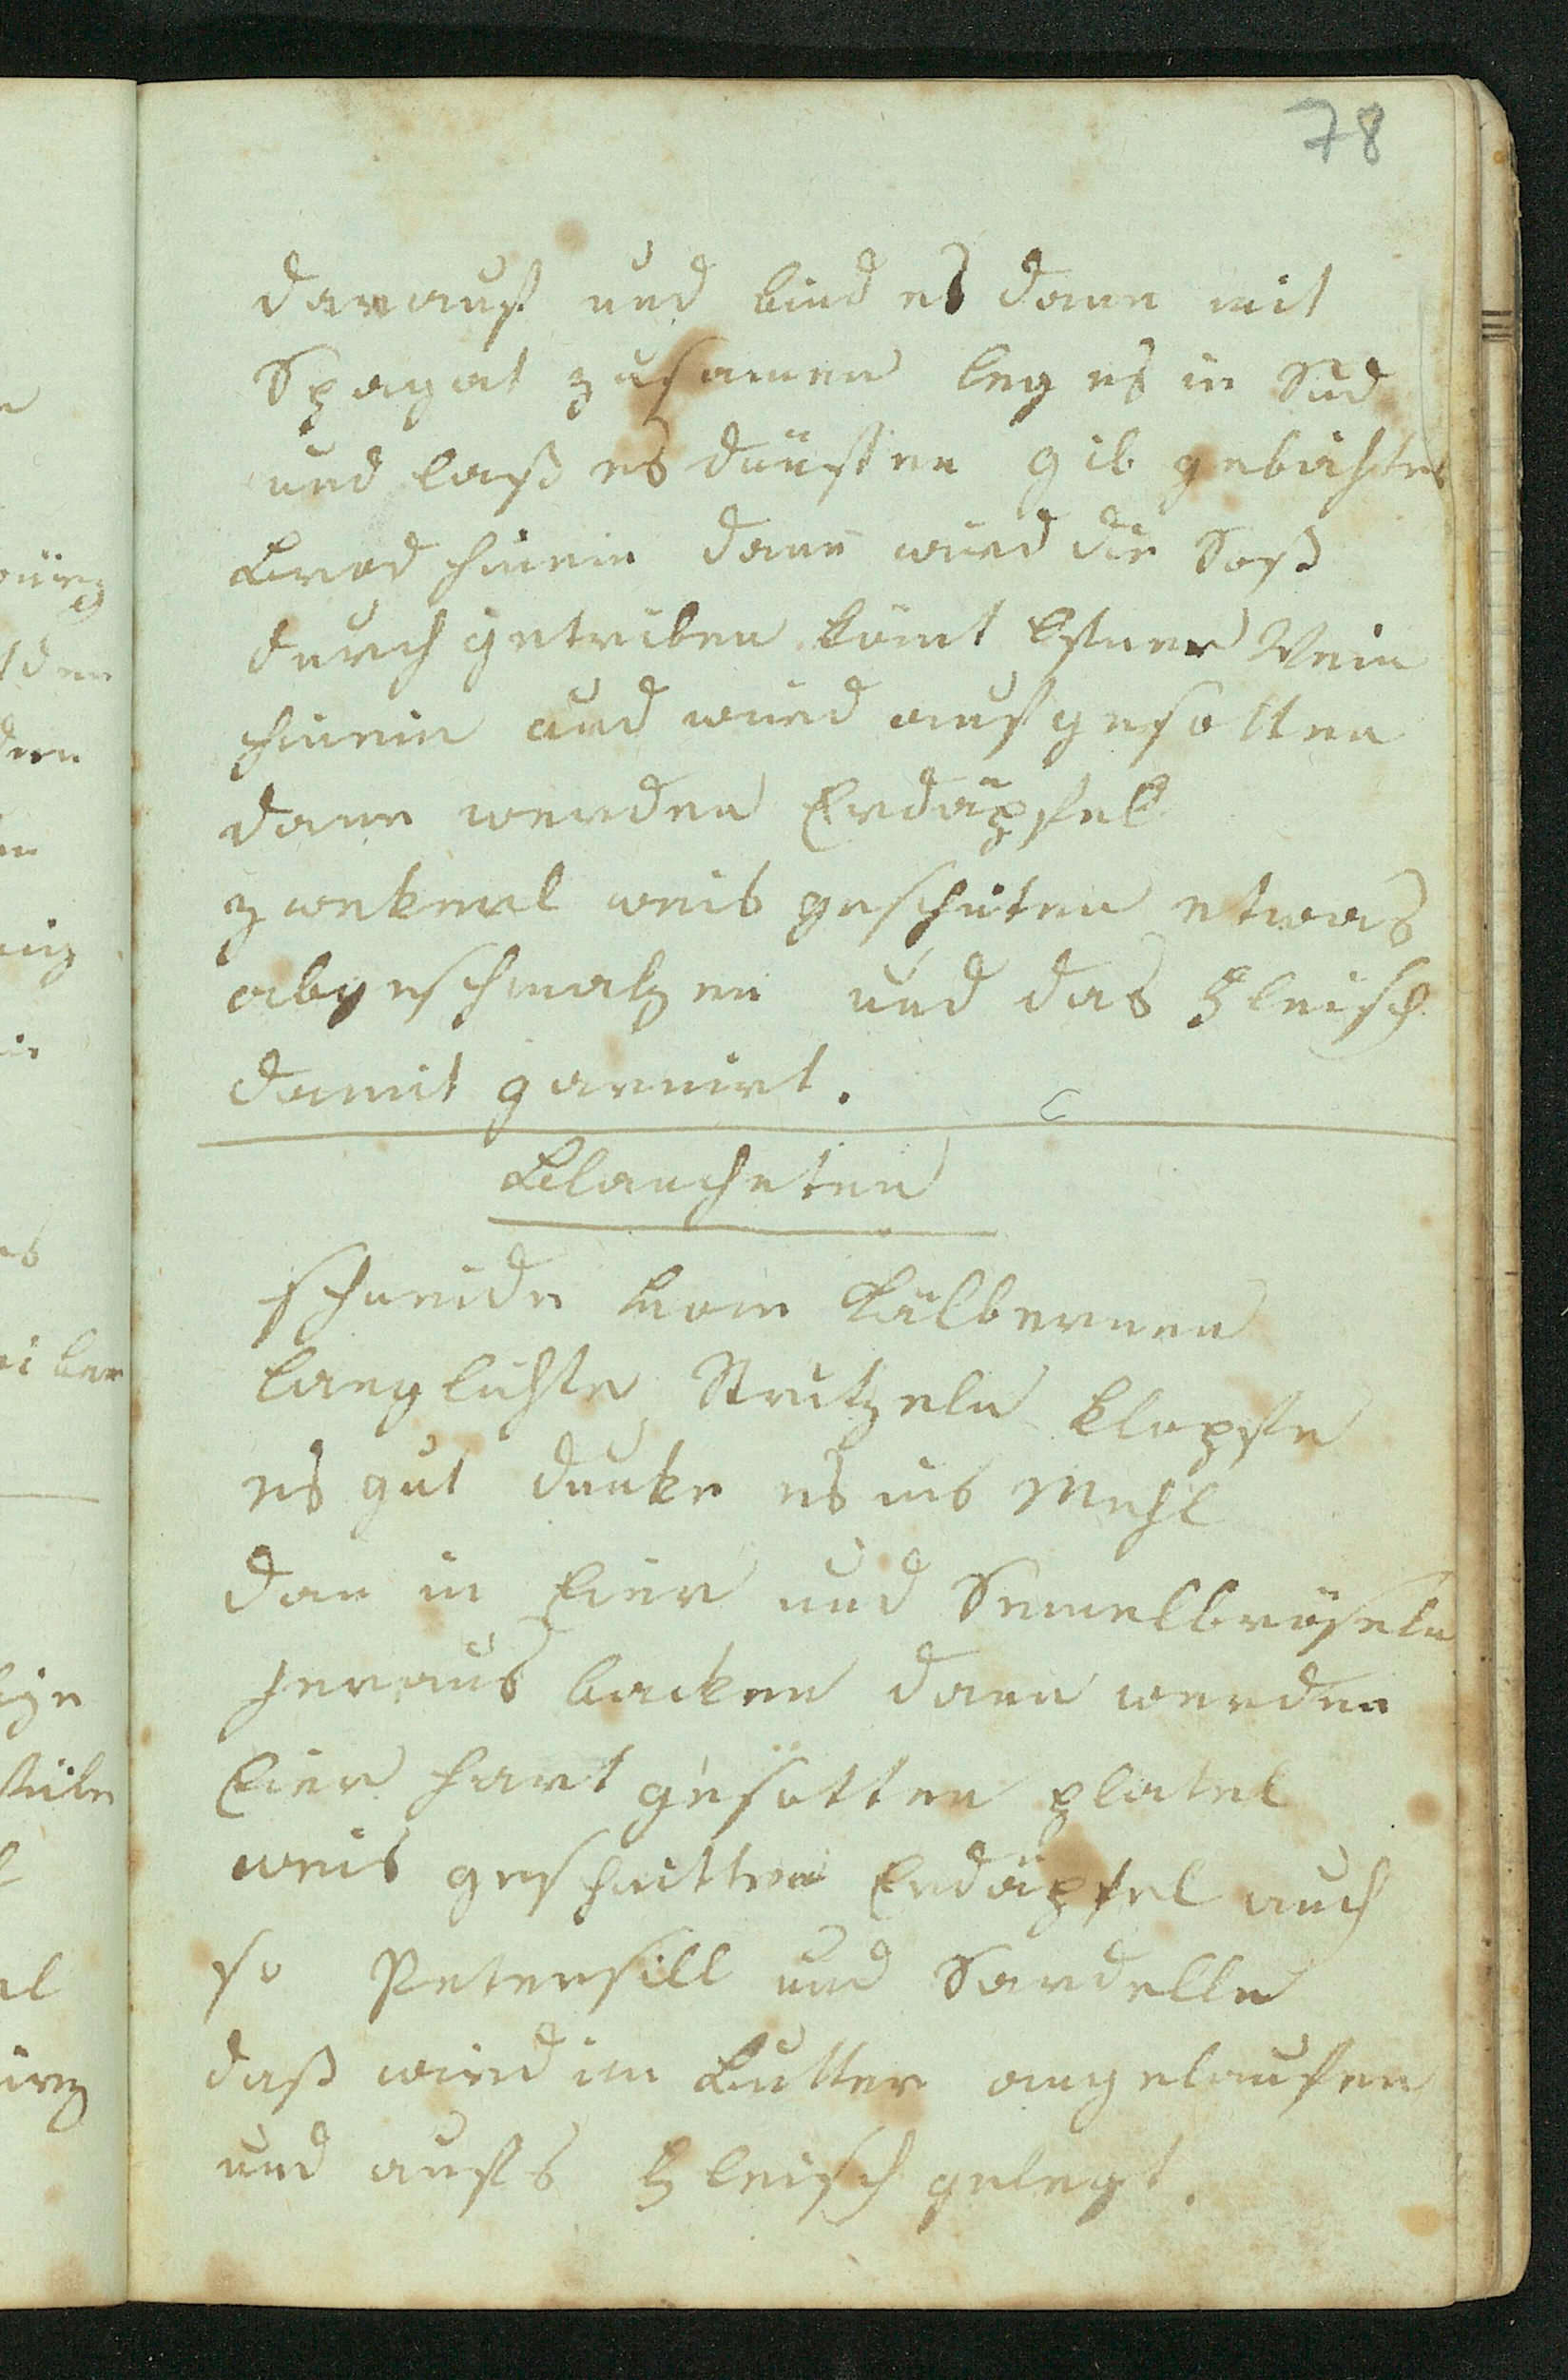 78
darauf und bind es dann mit
Spagat zusamen leg es in Sud
und laß es dünsten gib gebähtes
Brod hinein dann wird die Soß
durch getriben kömt Wein
hinein und wird aufgesotten
dann werden Erdäpfel
zwekerl weis geschniten etwas
abgeschmalzen und das Fleisch
damit garnirt.
Blancheten
schneide vom Kälbernen
langlichte Strutzeln klopfe
es gut dunke es ins Mehl
dan in Eier und Semelbröseln
heraus backen dann werden
Eier hart gesotten platel
weis geschnitten Erdäpfel auch
so Petersill und Sardelle
daß wird im Butter angelaufen
und aufs Fleisch gelegt.